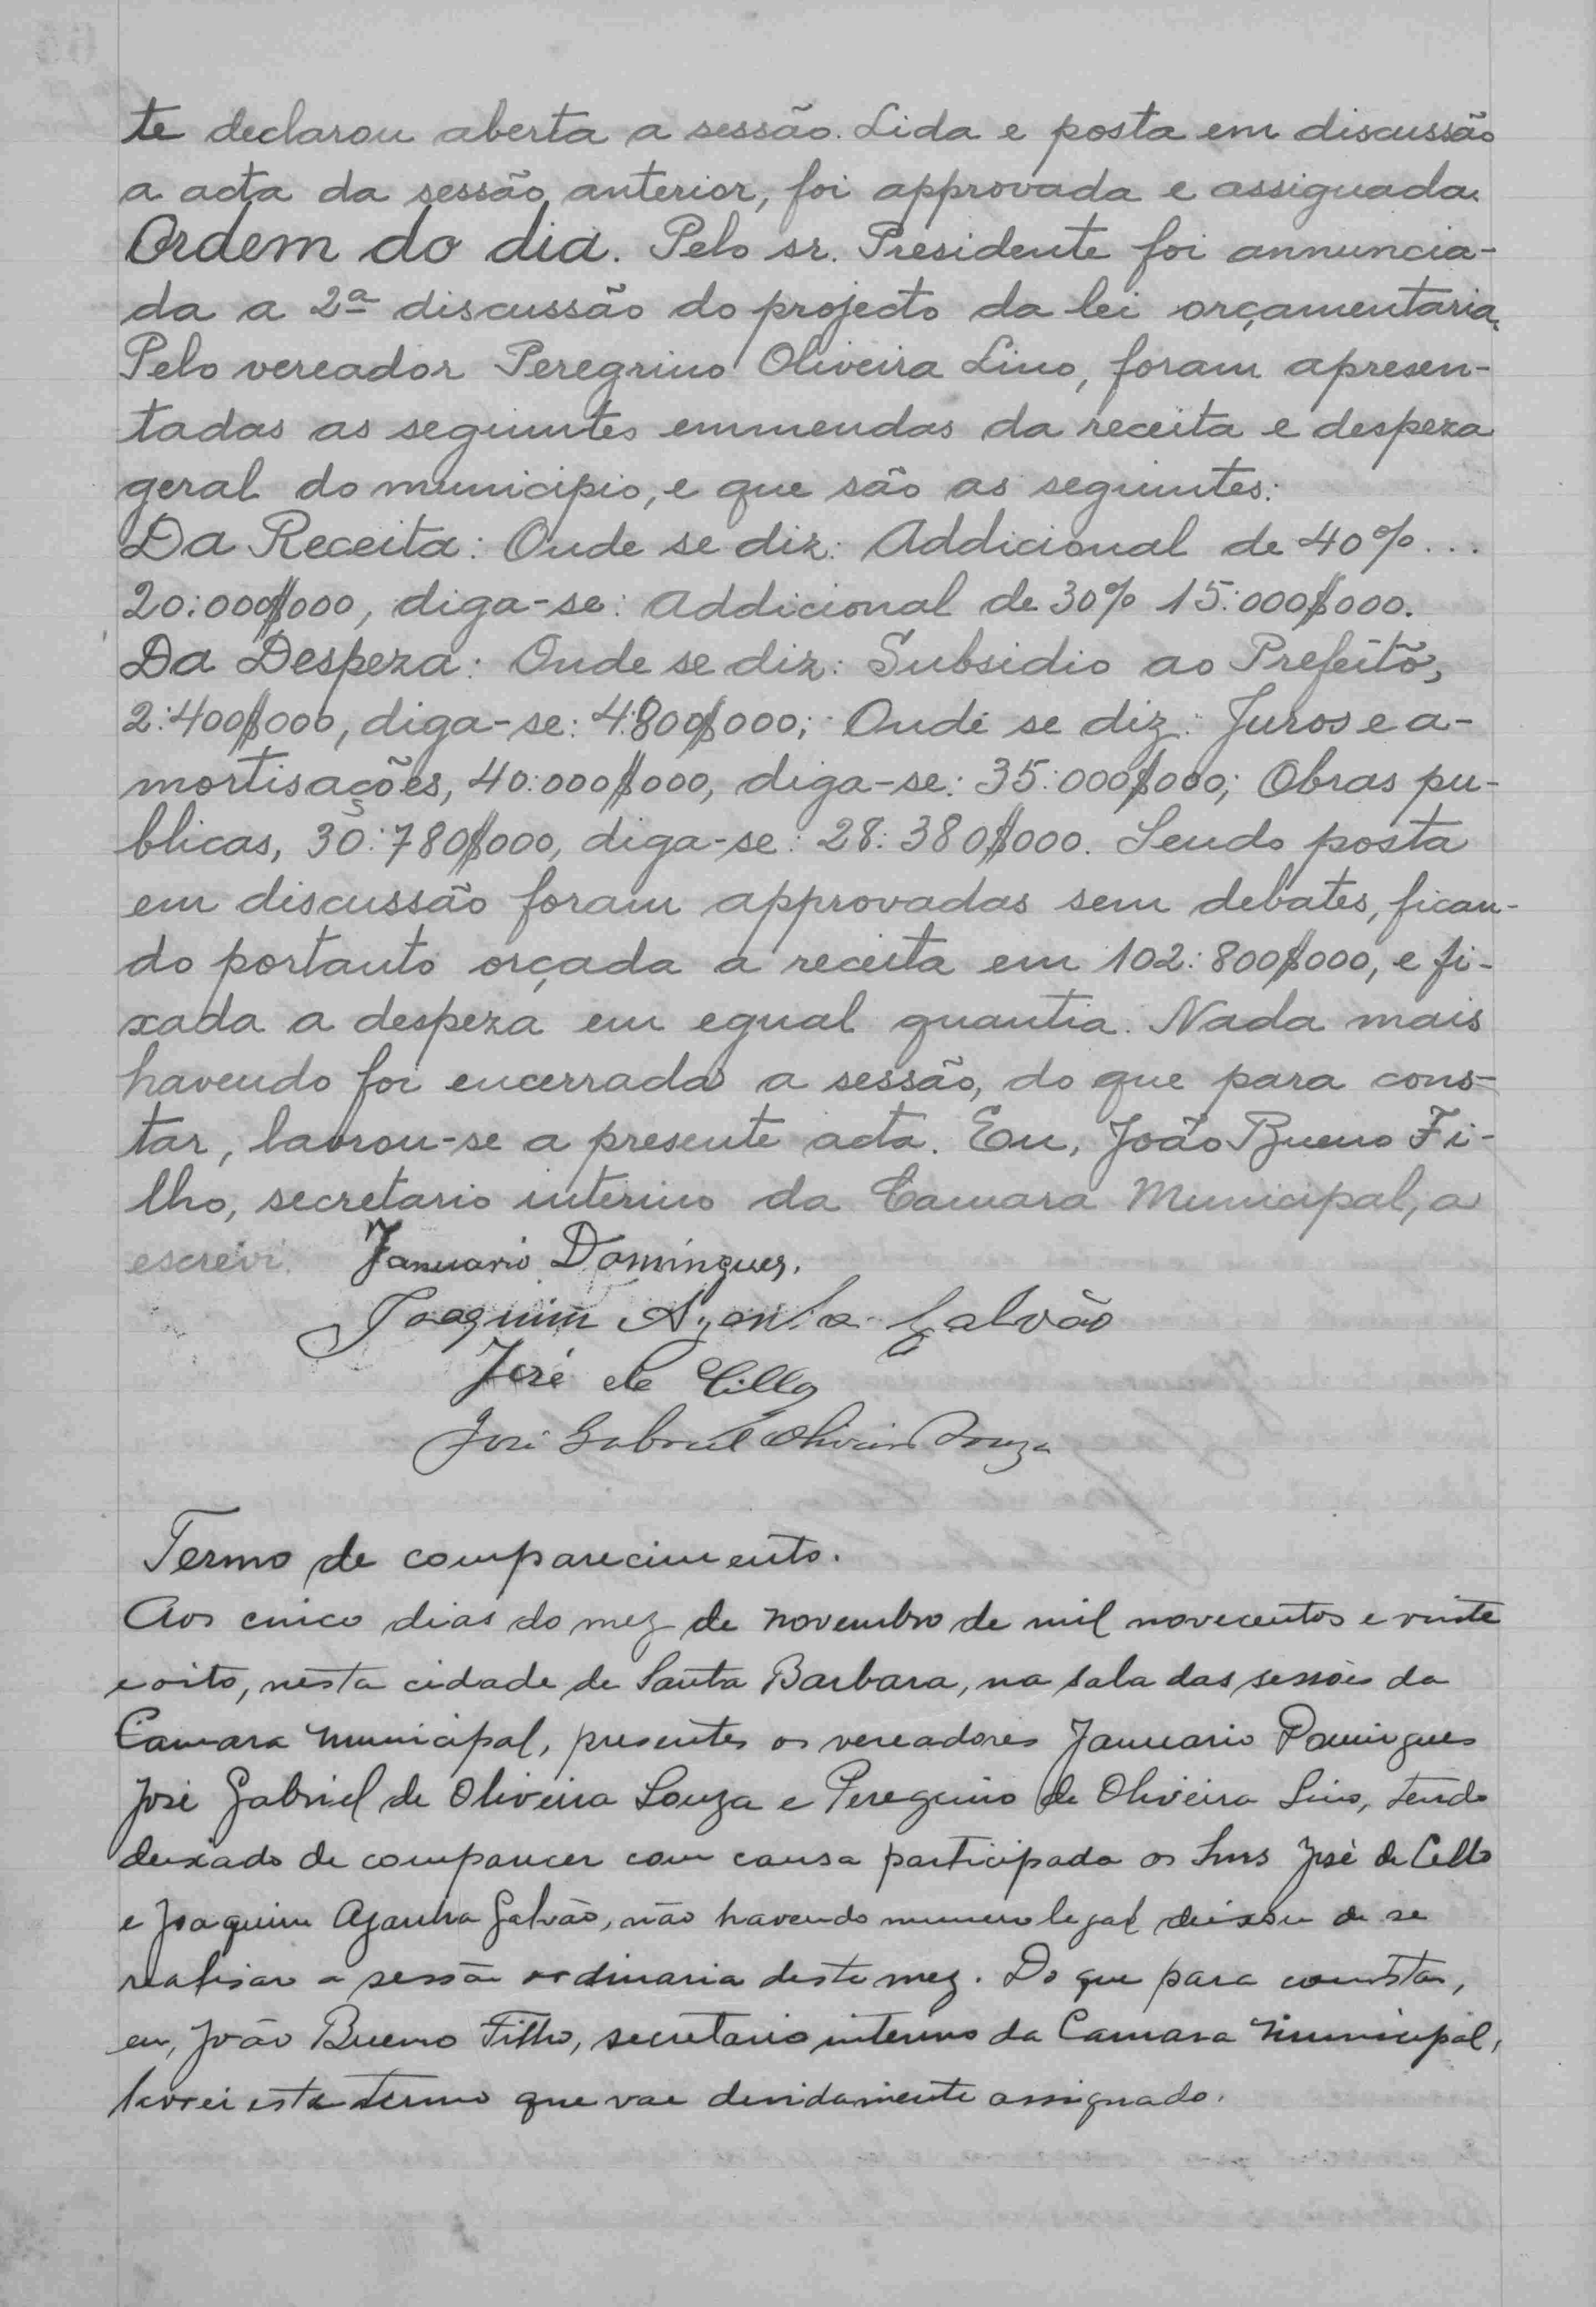 te declarou aberta a sessão. Lida e posta em discussão
a acta da sessão anterior, foi approvada e assignada.
Ordem do dia. Pelo sr. Presidente foi annuncia-
da a 2ª discussão do projecto da lei orçamentaria.
Pelo vereador Peregrino Oliveira Lino, foram apresen-
tadas as seguintes emmendas da receita e despeza
geral do municipio, e que são as seguintes:
Da Receita: Onde se diz: Addicional de 40% ...
20:000$000, diga-se: Addicional de 30% 15:000$000.
Da Despeza: Onde se diz: Subsidio ao Prefeito,
2:400$000, diga-se: 4:800$000; Onde se diz: Juros e a-
mortisações, 40:000$000, diga-se: 35:000$000; Obras pu-
blicas, 30:780$000, diga-se: 28:380$000. Sendo posta
em discussão foram approvadas sem debates, fican-
do portanto orçada a receita em 102:800$000, e fi-
xada a despeza em egual quantia. Nada mais
havendo foi encerrada a sessão, do que para cons-
tar, lavrou-se a presente acta. Eu, João Bueno Fi-
lho, secretario interino da Camara Municipal, a
escrevi. Januario Domingues.
Joaquim Azanha Galvão
José de Cillo
José Gabriel Oliveira Souza
Termo de comparecimento.
Aos cinco dias do mez de novembro de mil novecentos e vinte
e oito, nesta cidade de Santa Barbara, na sala das sessões da
Camara Municipal, presentes os vereadores Januario Domingues
José Gabriel de Oliveira Souza e Peregrino de Oliveira Lino, tendo
deixado de comparecer com causa participada os Snrs José de Cillo
e Joaquim Azanha Galvão, não havendo numero legal deixou de se
realisar a sessão ordinaria deste mez. Do que para constar,
eu, João Bueno Filho, secretario interino da Camara Municipal,
lavrei este termo que vae devidamente assignado.